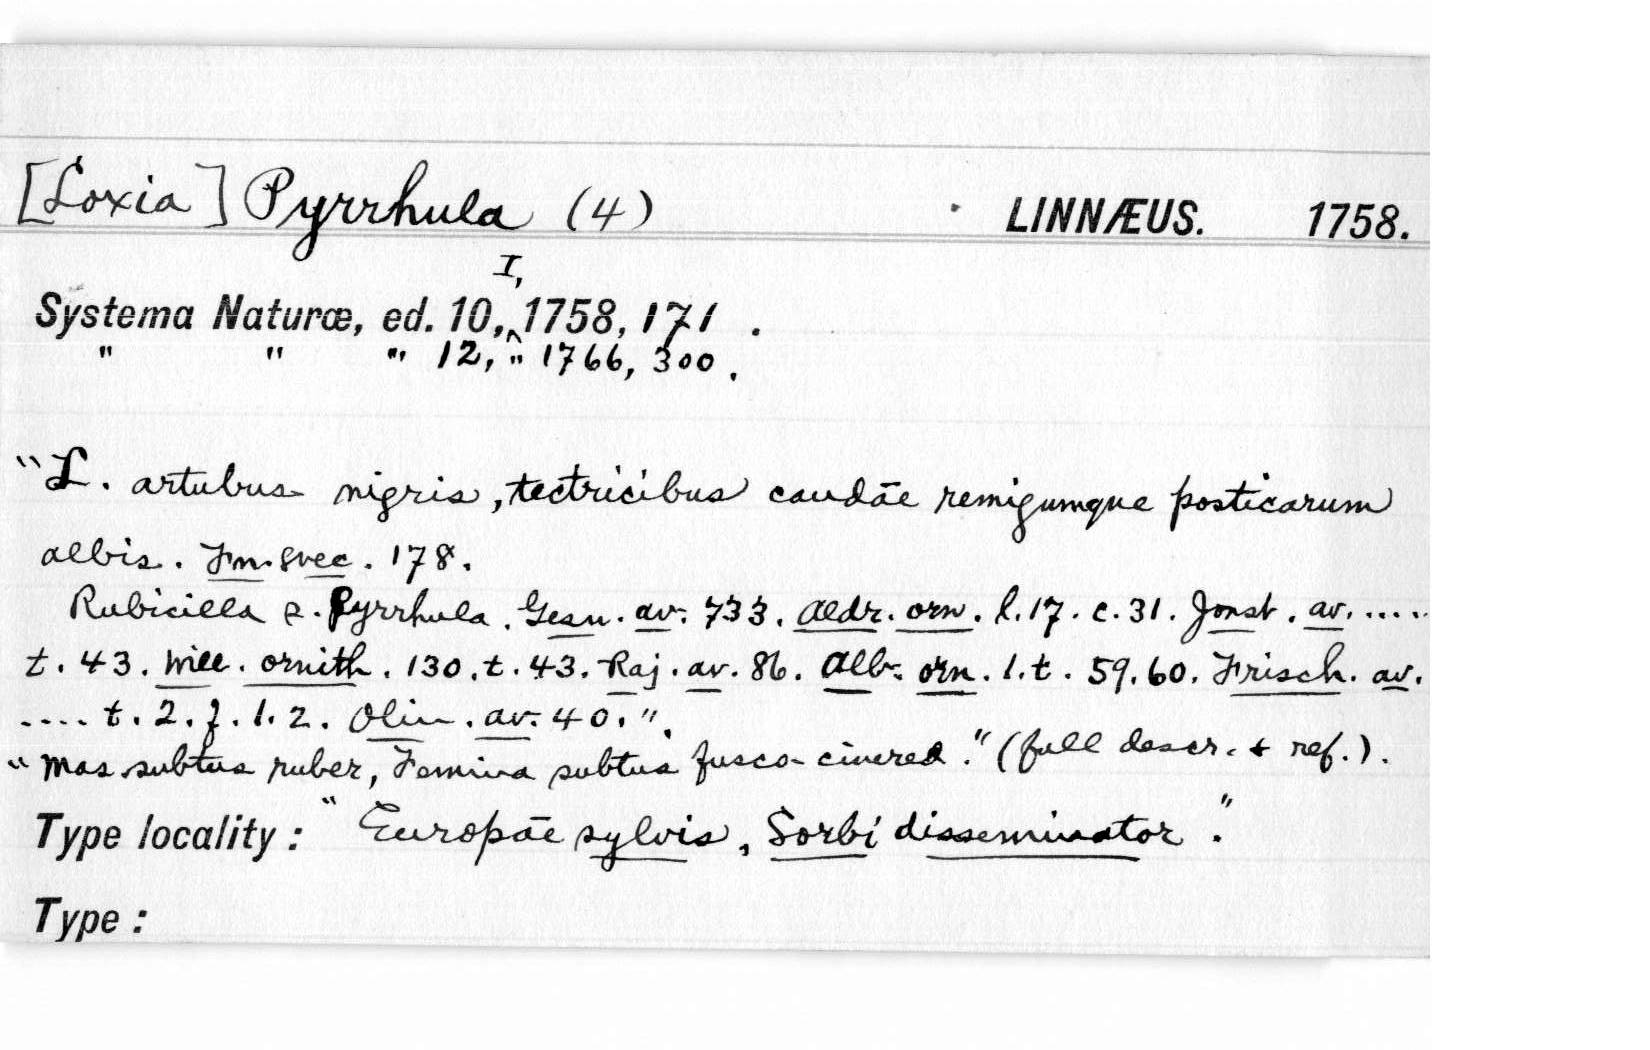 [Loxia] Pyrrhula (4) LINNÆUS. 1758.
I,
Systema Naturæ, ed. 10, ^ 1758, 171 .
" " " 12, " 1766, 300 .
"L. artubus nigris, tectricibus caudāe remigumque posticarum
albis. Fn. svec. 178.
Rubicilla s. Pyrrhula. Gesn. av. 733. Aldr. orn. l. 17. c. 31. Jonst. av. .....
t. 43. Will. ornith. 130. t. 43. Raj. av. 86. Alb. orn. 1. t. 59. 60. Frisch. av.
.... t. 2. f. 1. 2. Olin. av. 40.".
"Mas subtus ruber, Femina subtus fusco-cinerea." (full descr. + ref.).
Type locality: "Europāe sylvis, Sorbi disseminator."
Type: